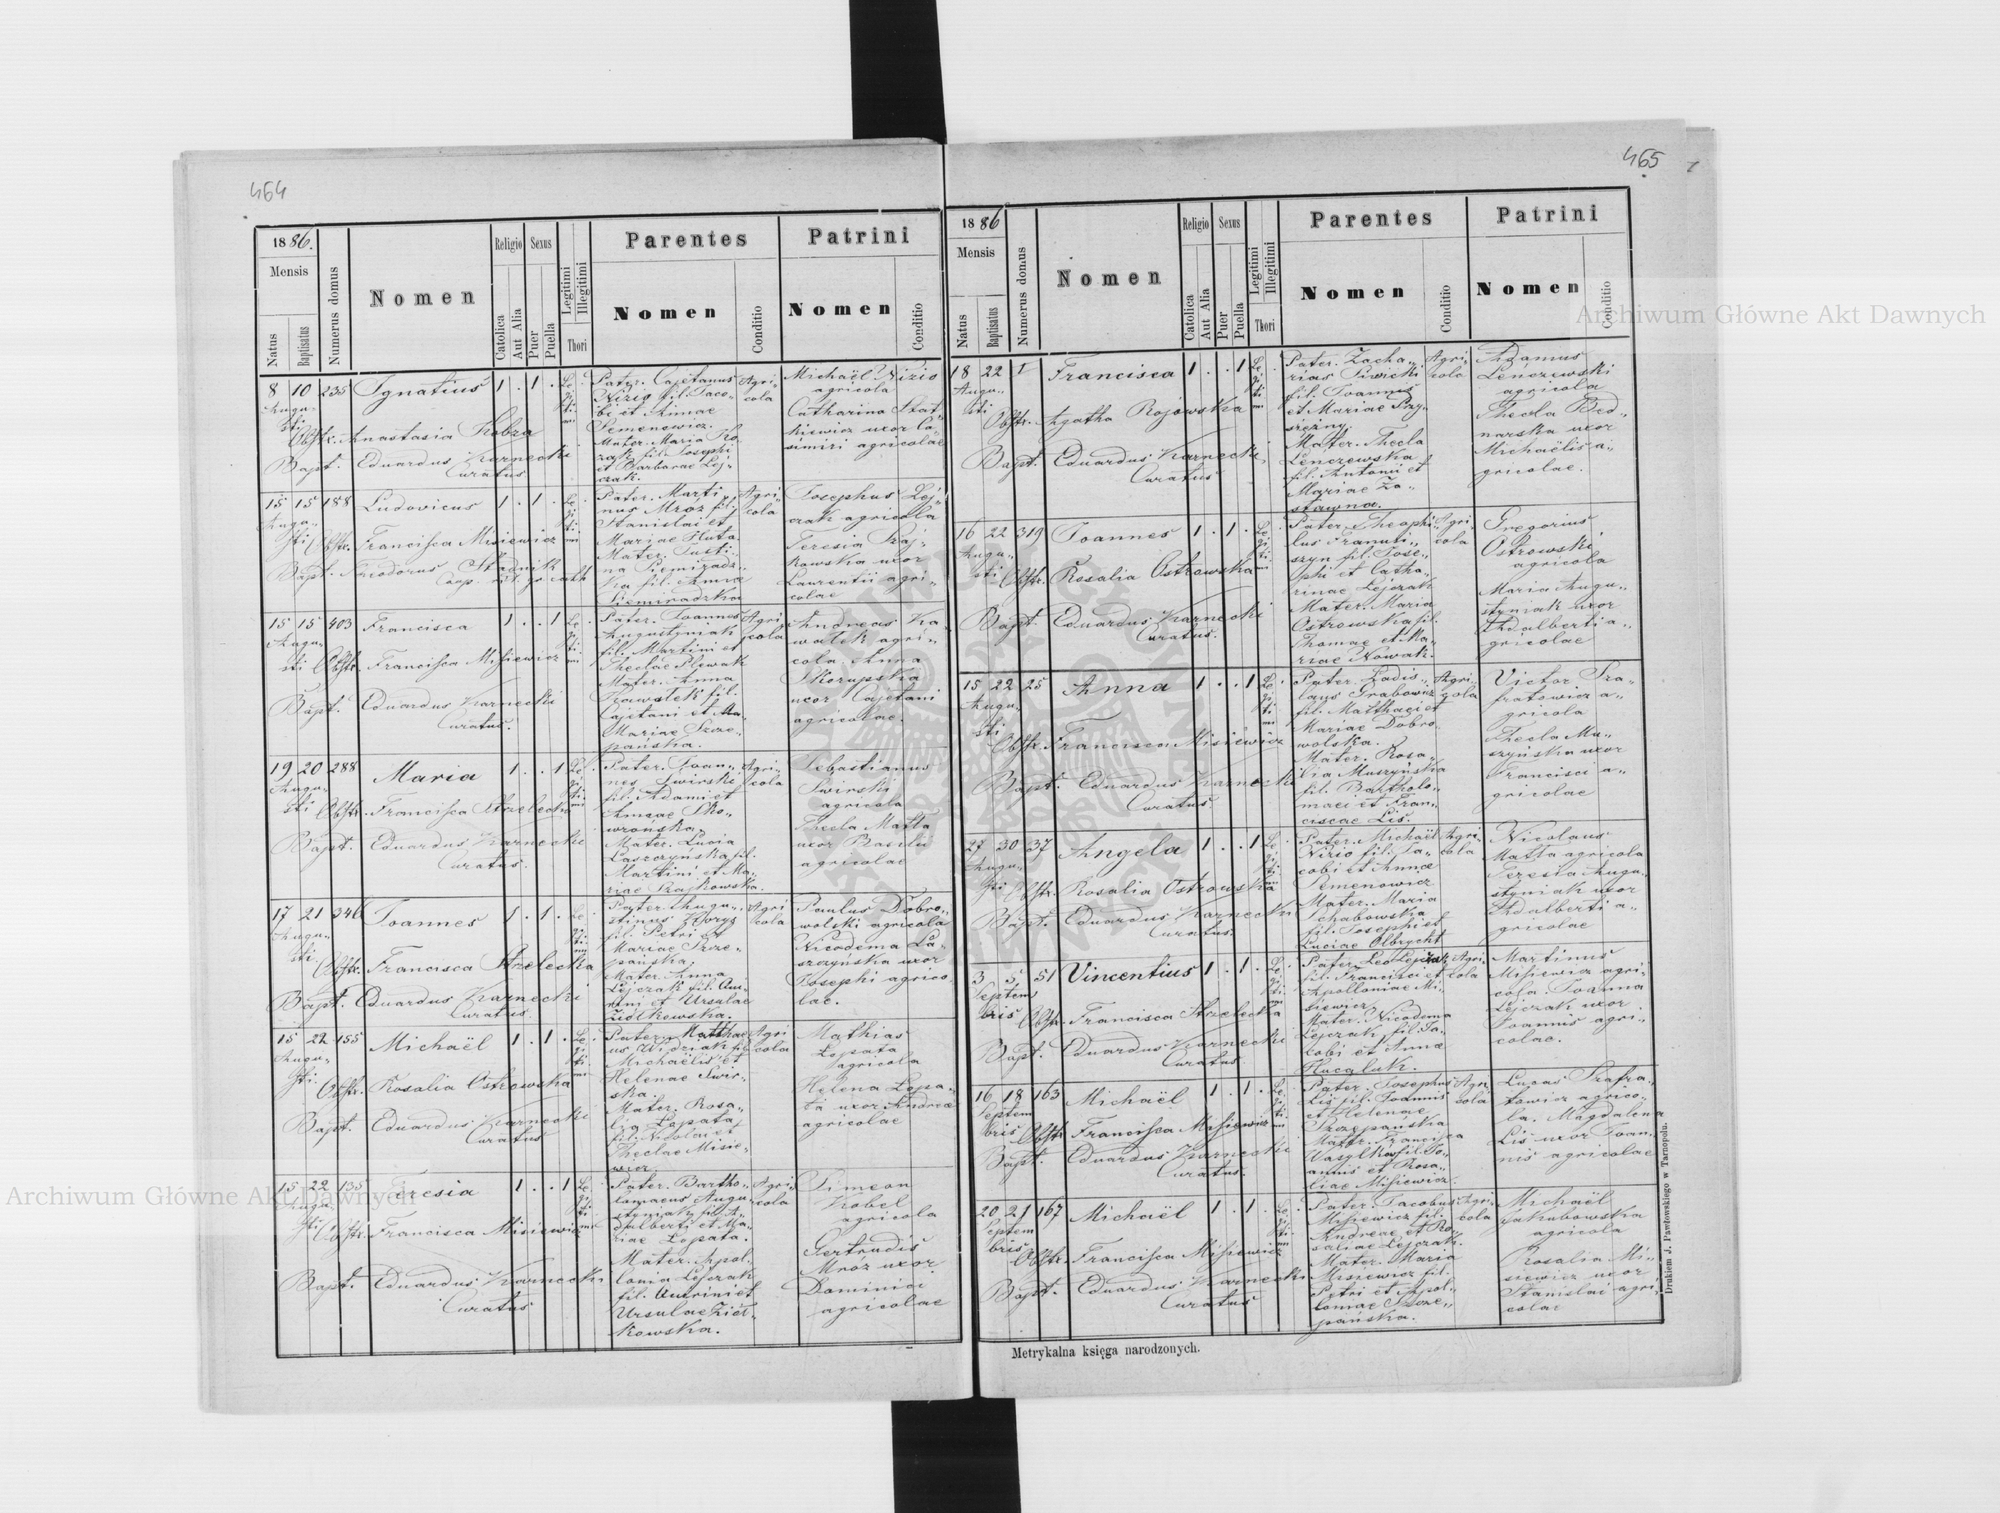 464
1886.
Mensis
Natus
Baptisatus
Numerus domus
Nomen
Religio
Catolica
Aut Alia
Sexus
Puer
Puella
Legitimi
Illegitimi
Thori
Parentes
Nomen
Conditio
Patrini
Nomen
Conditio
8 10 235 Ignatius 1 . 1 .
Augu-
sti
Obstr. Anastasia Kobza
Bapt. Eduardus Karnecki
Curatus
Le-
gi-
ti-
mi
Pater. Cajetanus
Nizio fil. Jaco-
bi et Annae
Semenowicz.
Mater. Maria Ko-
zak fil. Josephi
et Barbarae Lej-
czak.
Agri-
cola
Michaël Nizio
agricola
Catharina
uxor Ca-
simiri agricolae
15 15 188 Ludovicus 1 . 1 .
Augu-
sti Obstr. Francisca Misiewicz
Bapt. Stadnik
Le-
gi-
ti-
mi
Pater. Marti-
nus Mróz fil.
Stanislai et
Mariae Huta
Mater. Justi-
na
fil. Annae
Agri-
cola
Josephus Lej-
czak agricola
Teresia Praj-
kowska uxor
Laurentii agri-
colae
15 15 403 Francisca 1 . . 1
Augu-
sti Obstr. Francisca Misiewicz
Bapt. Eduardus Karnecki
Curatus.
Le-
gi-
ti-
mi
Pater. Joannes
Augustyniak
fil. Martini et
Theclae Slewak
Mater. Anna
fil.
Cajetani et Ma-
Mariae Szcze-
pańska.
Agri-
cola
Andreas Ka-
agri-
cola Anna
Skorupska
uxor Cajetani
agricolae.
19 20 288 Maria 1 . . 1
Augu-
sti Obstr. Francisca Strzelecka
Bapt. Eduardus Karnecki
Curatus.
Le-
gi-
ti-
mi
Pater. Joan-
nes Swirski
fil. Adami et
Annae Sko-
wrońska.
Mater. Lucia
Laszczyńska fil.
Martini et Ma-
riae Prajkowska.
Agri-
cola
Sebastianus
Swirski
agricola
Thecla Matla
uxor Basilii
agricolae
17 21 346 Joannes 1 . 1 .
Augu-
sti
Obstr. Francisca Strzelecka
Bapt. Eduardus Karnecki
Curatus.
Le-
gi-
ti-
mi
Pater Augu-
stinus
fil. Petri et
Mariae Szcze-
pańska.
Mater. Anna
Lejczak fil. An-
toni et Ursulae
Ziółkowska.
Agri-
cola
Paulus Dobro-
wolski agricola
Nicodema La-
szczyńska uxor
Josephi agrico-
lae.
15 22 155 Michaël 1 . 1 .
Augu-
sti.
Obstr. Rosalia Ostrowska
Bapt. Eduardus Karnecki
Curatus
Le-
gi-
ti-
mi
Pater. Matthae-
us fil.
Michaëlis et
Helenae Swir-
ska.
Mater. Rosa-
lia Łopata
fil. Nicolai et
Theclae Misie-
wicz
Agri-
cola
Mathias
Łopata
agricola
Helena Łopa-
ta uxor Andreae
agricolae
15 22 135 Teresia 1 . . 1
Augu-
sti Obstr. Francisca Misiewicz
Bapt. Eduardus Karnecki
Curatus
Le-
gi-
ti-
mi
Pater. Bartho-
lomaeus Augu-
styniak fil. A-
dalberti et Ma-
riae Łopata.
Mater. Apol-
lonia Lejczak
fil. Antonini et
Ursulae Ziół-
kowska.
Agri-
cola
Simeon
Kobel
agricola
Gertrudis
Mróz uxor
Dominici
agricolae
465
1886
Mensis
Natus
Baptisatus
Numerus domus
Nomen
Religio
Catolica
Aut Alia
Sexus
Puer
Puella
Legitimi
Illegitimi
Thori
Parentes
Nomen
Conditio
Patrini
Nomen
Conditio
18 22 I Francisca 1 . . 1
Augu-
sti
Obstr. Agatha Rojowska
Bapt. Eduardus Karnecki
Curatus
Le-
gi-
ti-
mi
Pater. Zacha-
rias Piwicki
fil. Joannis
et Mariae Przy-
siężny.
Mater. Thecla
Lenczewska
fil. Antonii et
Mariae Za-
stawna.
Agri-
cola
Adamus
Lenczewski
agricola
Thecla Bed-
narska uxor
Michaëlis a-
gricolae.
16 22 319 Joannes 1 . 1 .
Augu-
sti Obstr. Rosalia Ostrowska
Bapt. Eduardus Karnecki
Curatus.
Le-
gi-
ti-
mi
Pater. Theophi-
lus
fil. Jose-
phi et Catha-
rinae Lejczak
Mater. Maria
Ostrowska fil.
Thomae et Ma-
riae Nowak.
Agri-
cola
Gregorius
Ostrowski
agricola
Maria Augu-
styniak uxor
Adalberti a-
gricolae
15 22 25 Anna 1 . . 1
Augu-
sti
Obstr. Francisca Misiewicz
Bapt. Eduardus Karnecki
Curatus
Le-
gi-
ti-
mi
Pater. Ladis-
laus Grabowicz
fil. Matthaei et
Mariae Dobro-
wolska.
Mater. Rosa-
lia Muszyńska
fil. Bartholo-
maei et Fran-
ciscae Lis.
Agri-
cola
Victor Sza-
fratowicz a-
gricola
Thecla Mu-
szyńska uxor
Francisci a-
gricolae
27 30 37 Angela 1 . . 1
Augu-
sti Obstr. Rosalia Ostrowska
Bapt. Eduardus Karnecki
Curatus.
Le-
gi-
ti-
mi
Pater. Michaël
Nizio fil. Ja-
cobi et Annae
Semenowicz
Mater. Maria
Schabowska
fil. Josephi et
Luciae Olbrycht
Agri-
cola
Nicolaus
Matla agricola
Teresia Augu-
styniak uxor
Adalberti a-
gricolae
3 5 51 Vincentius 1 . 1 .
Septem
bris Obstr. Francisca Strzelecka
Bapt. Eduardus Karnecki
Curatus.
Le-
gi-
ti-
mi
Pater. Leo Lejczak
fil. Francisci et
Apolloniae Mi-
siewicz
Mater. Nicodema
Lejczak fil. Ja-
cobi et Annae
Hucaluk.
Agri-
cola
Martinus
Misiewicz agri-
cola. Joanna
Lejczak uxor
Joannis agri-
colae.
16 18 163 Michaël 1 . 1 .
Septem
bris Obstr. Francisca Misiewicz
Bapt. Eduardus Karnecki
Curatus.
Le-
gi-
ti-
mi
Pater. Josephus
Lis fil. Joannis
et Helenae
Szczepańska
Mater. Francisca
Wasylko fil. Jo-
annis et Rosa-
liae Misiewicz.
Agri-
cola
Lucas Szafra-
towicz agrico-
la. Magdalena
Lis uxor Joan-
nis agricolae
20 21 167 Michaël 1 . 1 .
Septem
bris Obstr. Francisca Misiewicz
Bapt. Eduardus Karnecki
Curatus
Le-
gi-
ti-
mi
Pater. Jacobus
Misiewicz fil.
Andreae et Ro-
saliae Lejczak.
Mater. Maria
Misiewicz fil.
Petri et Apol-
loniae Szcze-
pańska.
Agri-
cola
Michaël
Jakubowska
agricola
Rosalia Mi-
siewicz uxor
Stanislai agri-
colae
Metrykalna księga narodzonych.
Drukiem J. Pawłowskiego w Tarnopolu.
Archiwum Główne Akt Dawnych
Archiwum Główne Akt Dawnych